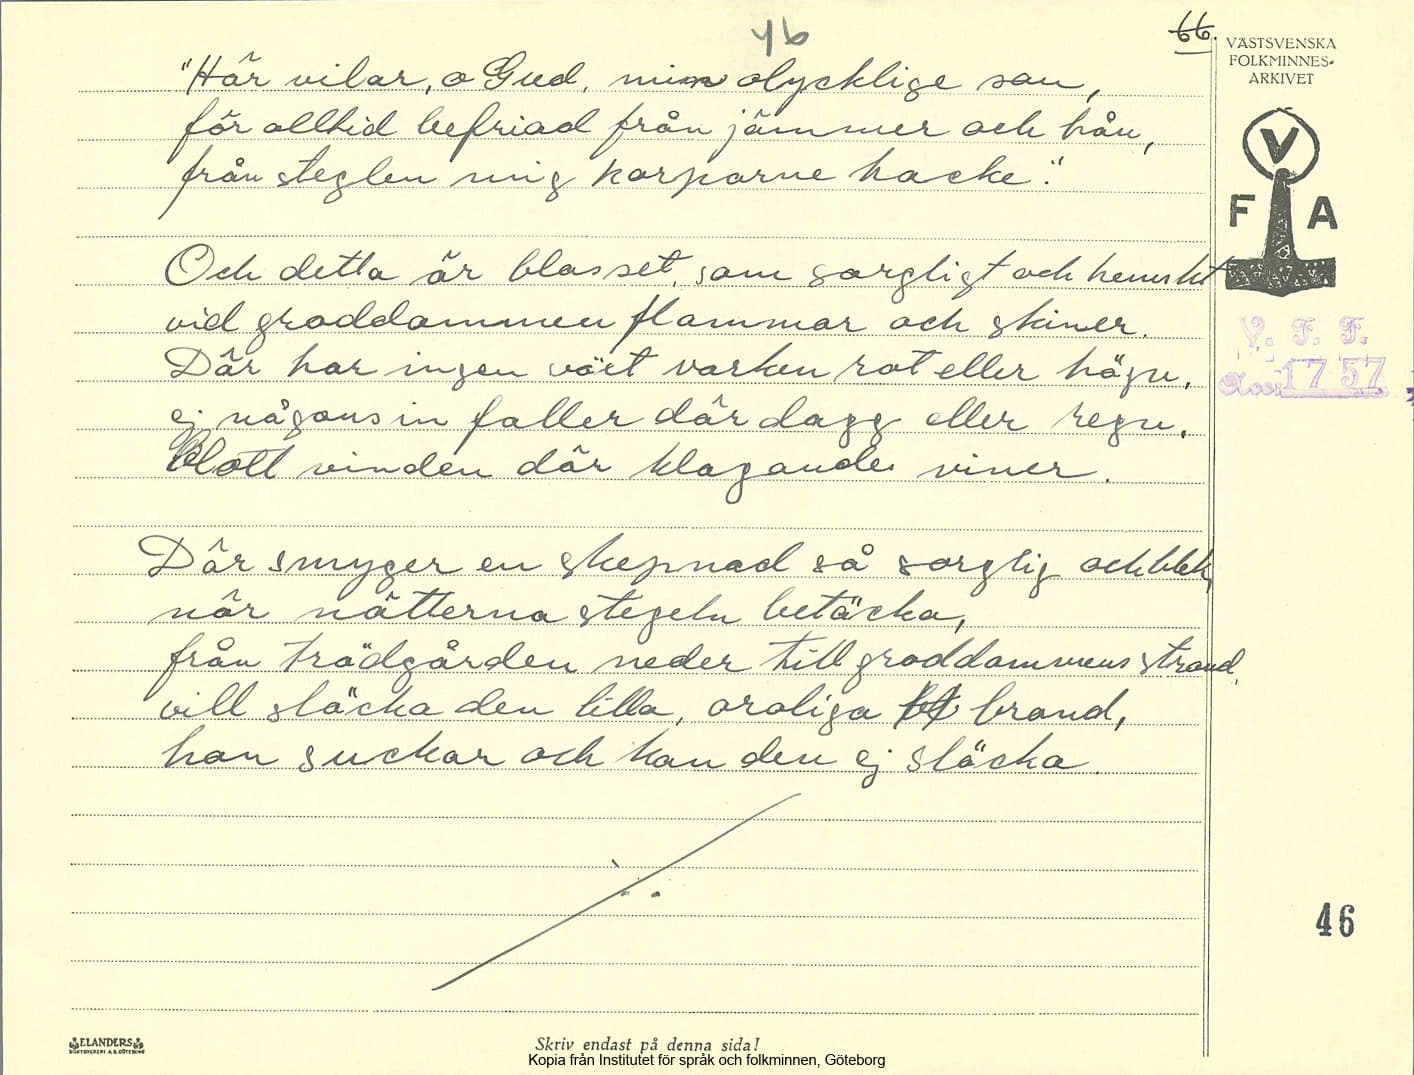 46
66.
VÄSTSVENSKA
FOLKMINNES-
ARKIVET
V
F A
V. F. F.
Acc. 1757
"Här vilar, o Gud, min olycklige son,
för alltid befriad från jämmer och hån,
från steglen mig korparne hacke."
Och detta är blosset, som sorgligt och hemskt
vid groddammen flammar och skiner.
Där har ingen växt varken rot eller hägn,
ej någonsin faller där dagg eller regn,
blott vinden där klagande viner.
Där smyger en skepnad så sorglig och blek,
när nätterna stegeln betäcka,
från trädgården neder till groddammens strand,
vill släcka den lilla, oroliga brand,
han suckar och kan den ej släcka.
46
ELANDERS
BOKTRYCKERI A.B. GÖTEBORG
Skriv endast på denna sida!
Kopia från Institutet för språk och folkminnen, Göteborg